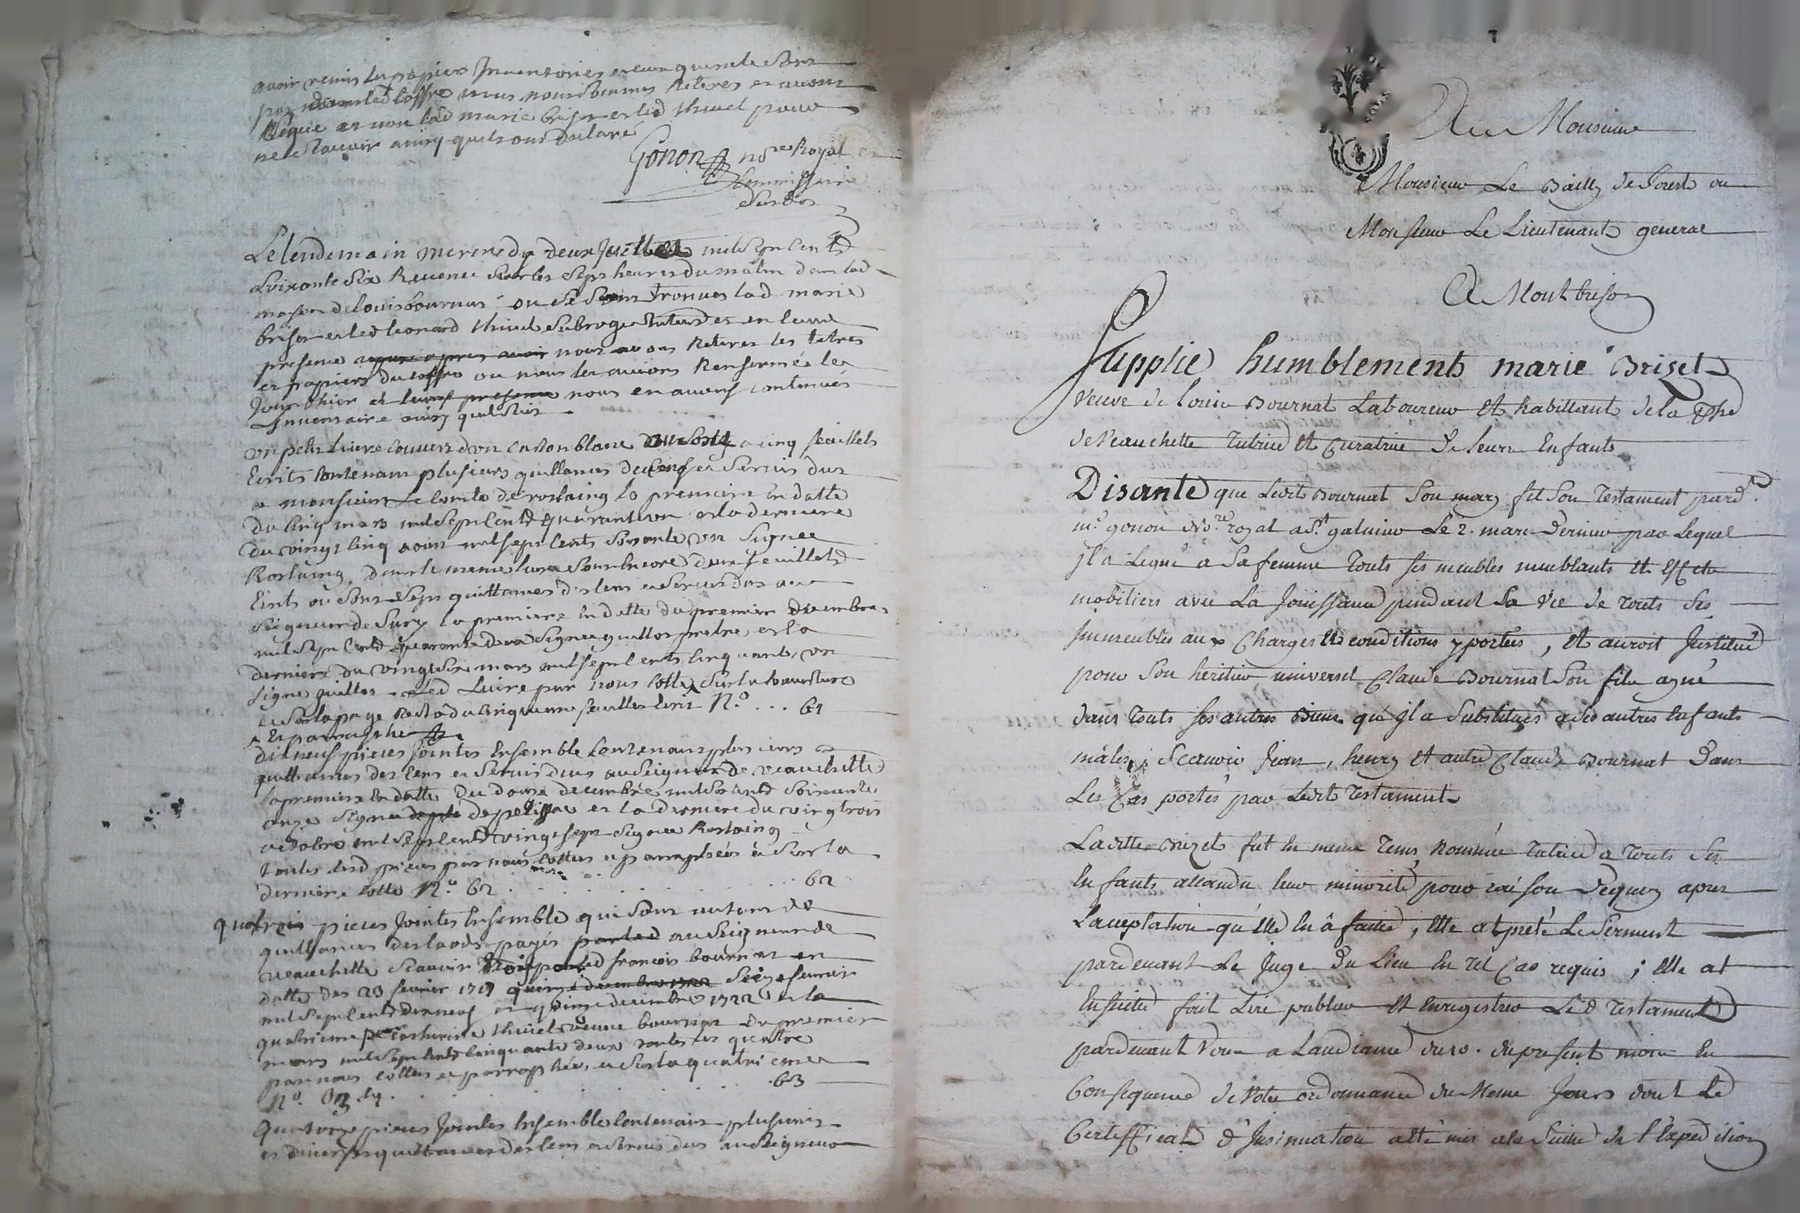 avoir remis les papiers Inventoriés
par dans led Coffre nous nous sommes Retirés et avons
Requis lad marie brizet et led thiuel pour
ne le scavoir ainsy quils ont declaré
Gonon nore Royal et
Commissaire
Susdt
Le lendemain mercredy deux Juillet mil sept cent
Soixante Six Revenu sur les sept heures du matin dans lad
maison de Louis bournat ou se sont trouvés lad marie
brizet et led leonard thiuel Subrogé tuteur et en leurs
presence nous avons Retirés les tiltres
et papiers du coffre ou nous les avions Renfermés le
Jour d'hier et nous en avons continués
Inventaire ainsy que suit
un petit Livre couvert d'un carton blanc cinq feuillets
Ecrits Contenant plusieurs quittances de Cens et Servis dus
a monsieur Le Comte de rostaing la premiere En datte
du Cinq mars mil sept Cents quarante un et la derniere
du vingt cinq aout mil sept cents soixante un Signée
Rostaing, dans le meme livre sont Encore deux feuillets
Ecrits où sont Sept quittances des Cens et Servis dus au
Seigneur de Sury la premiere En datte du premier decembre
mil sept Cents quarante deux Signée quellot pretre, et la
derniere du vingt six mars mil sept cents cinquante un
signé quellot led Livre par nous Cotté sur la couverture
et sur la page Recto du cinquieme feuillet Ecrit N.o ... 61
Et parraphé
dix neuf pieces Jointes Ensemble Contenant plusieurs
quittances des Cens et Servis dus au Seigneur de veauchette
la premiere En datte du douze decembre mil six Cents soixante
onze Signée et la derniere du vingt trois
octobre mil sept Cents vingt sept Signée Rostaing
toutes lesd pieces par nous Cottées et parraphées et sur la
derniere Cotté N.o 62 . . . . . 62
Quatre pieces Jointes Ensemble qui sont autant de
quittances des laods payés au Seigneur de
veauchette Scavoir trois par led françois bournat en
datte des 29 fevrier 1717 quinze decembre 1722 Seize fevrier
mil sept cents dix neuf et quinze decembre 1722 et la
quatrieme par Catherine thiuel veuve bournat du premier
mars mil sept cents cinquante deux toutes les quatre
par nous Cottées et parraphées, et sur la quatrieme
N.o 63 . . . . . 63
Quatorze pieces Jointes Ensemble Contenant plusieurs
et diverses quittances des Cens et Servis dus au Seigneur
SOLS
A Monsieur
Monsieur Le Bailly de Forest ou
Monsieur Le Lieutenant general
A Montbrison
Supplie humblement marie Brizet
Veuve de Louis Bournat Laboureur et habittant de la psse
de Veauchette Tutrice et Curatrice de Leurs Enfants
Disante que Ledit Bournat son mary fit Son Testament pard.t
m.e gonon No.re royal a St galmier Le 2. mars dernier par Lequel
Jl a Legué a Sa femme Touts ses meubles meublants et Effets
mobiliers avec La Jouissance pendant Sa vie de Touts Ses
Jmmeubles aux Charges et conditions y portées, et auroit Jnstitué
pour Son heritier universel Claude Bournat Son fils ayné
dans Touts ses autres Biens qu'Jl a Substitués a Ses autres Enfants
mâles, Scavoir Jean, henry et autre Claude Bournat Dans
Les Cas portés par Ledit Testament
Laditte Brizet fut En meme Tems Nommée Tutrice a Touts Ses
Enfants attandu leur minorité, pour raison Dequoy apres
L'acceptation qu'Elle En â faitte, Elle at prété Le Serment
pardevant Le Juge Du Lieu En Tel Cas requis ; Elle at
Ensuitte fait Lire publier et Enregistrer Led Testament
pardevant Vous a Laudiance du 10. du present mois En
Consequence de Votre ordonnance du Meme Jours dont Le
Certifficat d'Jnsinuation atté mis a la Suitte de l'Expedition